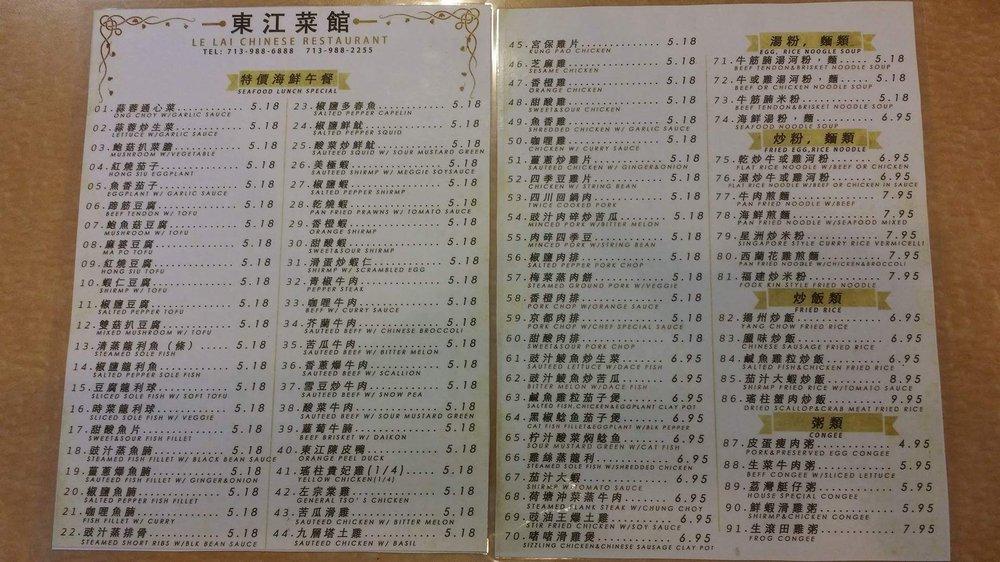 東江菜館
LE LAI CHINESE RESTAURANT
TEL: 713-988-6888 713-988-2255
特價海鮮午餐
SEAFOOD LUNCH SPECIAL
01.蒜蓉通心菜 5.18
ONG CHOY W/GARLIC SAUCE
02.蒜蓉炒生菜 5.18
LETTUCE W/GARLIC SAUCE
03.鮑菇扒菜膽 5.18
MUSHROOM W/VEGETABLE
04.紅燒茄子 5.18
HONG SIU EGGPLANT
05.魚香茄子 5.18
EGGPLANT W/ GARLIC SAUCE
06.蹄筋豆腐 5.18
BEEF TENDON W/ TOFU
07.鮑魚菇豆腐 5.18
MUSHROOM W/ TOFU
08.麻婆豆腐 5.18
MA PO TOFU
09.紅燒豆腐 5.18
HONG SIU TOFU
10.蝦仁豆腐 5.18
SHIRMP W/ TOFU
11.椒鹽豆腐 5.18
SALTED PEPPER TOFU
12.雙菇扒豆腐 5.18
MIXED MUSHROOM W/ TOFU
13.清蒸龍利魚（條） 5.18
STEAMED SOLE FISH
14.椒鹽龍利魚 5.18
SALTED PEPPER SOLE FISH
15.豆腐龍利球 5.18
SLICED SOLE FISH W/ SOFT TOFU
16.時菜龍利球 5.18
SLICED SOLE FISH W/ VEGGIE
17.甜酸魚片 5.18
SWEET&SOUR FISH FILLET
18.豉汁蒸魚腩 5.18
STEAMED FISH FILLET W/ BLACK BEAN SAUCE
19.薑蔥爆魚腩 5.18
STEAMED FISH FILLET W/ GINGER&ONION
20.椒鹽魚腩 5.18
SALTED PEPPER FISH FILLET
21.咖喱魚腩 5.18
FISH FILLET W/ CURRY
22.豉汁蒸排骨 5.18
STEAMED SHORT RIBS W/BLK BEAN SAUCE
23.椒鹽多春魚 5.18
SALTED PEPPER CAPELIN
24.椒鹽鮮魷 5.18
SALTED PEPPER SQUID
25.酸菜炒鮮魷 5.18
SAUTEED SQUID W/ SOUR MUSTARD GREEN
26.美極蝦 5.18
SAUTEED SHIRMP W/ MEGGIE SOYSAUCE
27.椒鹽蝦 5.18
SALTED PEPPER SHIRMP
28.乾燒蝦 5.18
PAN FRIED PRAWNS W/ TOMATO SAUCE
29.香橙蝦 5.18
ORANGE SHIRMP
30.甜酸蝦 5.18
SWEET&SOUR SHIRMP
31.滑蛋炒蝦仁 5.18
SHIRMP W/ SCRAMBLED EGG
32.青椒牛肉 5.18
PEPPER STEAK
33.咖喱牛肉 5.18
BEEF W/ CURRY SAUCE
34.芥蘭牛肉 5.18
SAUTEED BEEF W/ CHINESE BROCCOLI
35.苦瓜牛肉 5.18
SAUTEED BEEF W/ BITTER MELON
36.香蔥爆牛肉 5.18
SAUTEED BEEF W/ SCALLION
37.雪豆炒牛肉 5.18
SAUTEED BEEF W/ SNOW PEA
38.酸菜牛肉 5.18
SAUTEED BEEF W/ SOUR MUSTARD GREEN
39.蘿蔔牛腩 5.18
BEEF BRISKET W/ DAIKON
40.東江陳皮鴨 5.18
ORANGE PEEL DUCK
41.瑤柱貴妃雞(1/4) 5.18
YELLOW CHICKEN(1/4)
42.左宗棠雞 5.18
GENERAL TSO'S CHICKEN
43.苦瓜滑雞 5.18
SAUTEED CHICKEN W/ BITTER MELON
44.九層塔土雞 5.18
SAUTEED CHICKEN W/ BASIL
45.宮保雞片 5.18
KUNG PAO CHICKEN
46.芝麻雞 5.18
SESAME CHICKEN
47.香橙雞 5.18
ORANGE CHICKEN
48.甜酸雞 5.18
SWEET&SOUR CHICKEN
49.魚香雞 5.18
SHREDDED CHICKEN W/ GARLIC SAUCE
50.咖喱雞 5.18
CHICKEN W/ CURRY SAUCE
51.薑蔥炒雞片 5.18
SAUTEED CHICKEN W/ GINGER&ONION
52.四季豆雞片 5.18
CHICKEN W/ STRING BEAN
53.四川回鍋肉 5.18
TWICE COOKED PORK
54.豉汁肉碎炒苦瓜 5.18
MINCED PORK W/BITTER MELON
55.肉碎四季豆 5.18
MINCED PORK W/STRING BEAN
56.椒鹽肉排 5.18
SALTED PEPPER PORK CHOP
57.梅菜蒸肉餅 5.18
STEAMED GROUND PORK W/ VEGGIE
58.香橙肉排 5.18
PORK CHOP W/ORANGE SAUCE
59.京都肉排 5.18
PORK CHOP W/CHEF SPECIAL SAUCE
60.甜酸肉排 5.18
SWEET&SOUR PORK CHOP
61.豉汁鯪魚炒生菜 6.95
SAUTEED LETTUCE W/DACE FISH
62.豉汁鯪魚炒苦瓜 6.95
BITTER MELON W/DACE FISH
63.鹹魚雞粒茄子煲 6.95
SALTED FISH,CHICKEN&EGGPLANT CLAY POT
64.黑椒鯰魚茄子煲 6.95
CAT FISH FILLET&EGGPLANT W/BLK PEPPER
65.柠汁酸菜焖鯰魚 6.95
SOUR MUSTARD GREEN W/CAT FISH
66.雞絲蒸龍利 6.95
STEAMED SOLE FISH W/SHREDDED CHICKEN
67.茄汁大蝦 6.95
SHIRMP W/TOMATO SAUCE
68.荷塘冲菜蒸牛肉 6.95
STEAMED FLANK STEAK W/CHUNG CHOY
69.豉油王爆土雞 6.95
STIR FRIED CHICKEN W/SOY SAUCE
70.啫啫滑雞煲 6.95
SIZZLING CHICKEN&CHINESE SAUSAGE CLAY POT
湯粉，麵類
EGG, RICE NOOGLE SOUP
71.牛筋腩湯河粉，麵 5.18
BEEF TENDON&BRISKET NOODLE SOUP
72.牛或雞湯河粉，麵 5.18
BEEF OR CHICKEN NOODLE SOUP
73.牛筋腩米粉 5.18
BEEF TENDON&BRISKET NOODLE SOUP
74.海鮮湯粉，麵 6.95
SEAFOOD NOODLE SOUP
炒粉，麵類
FRIED EGG,RICE NOODLE
75.乾炒牛或雞河粉 6.95
FLAT RICE NOODLE W/BEEF OR CHICKEN
76.濕炒牛或雞河粉 6.95
FLAT RICE NOODLE W/BEEF OR CHICKEN IN SAUCE
77.牛肉煎麵 7.95
PAN FRIED NOODLE W/BEEF
78.海鮮煎麵 7.95
PAN FRIED NOODLE W/SEAFOOD MIXED
79.星洲炒米粉 7.95
SINGAPORE STYLE CURRY RICE VERMICELLI
80.西蘭花雞煎麵 7.95
PAN FRIED NOODLE W/CHICKEN&BROCCOLI
81.福建炒米粉 7.95
FOOK KIN STYLE FRIED NOODLE
炒飯類
FRIED RICE
82.揚州炒飯 6.95
YANG CHOW FRIED RICE
83.臘味炒飯 6.95
CHINESE SAUSAGE FRIED RICE
84.鹹魚雞粒炒飯 6.95
SALTED FISH&CHICKEN FRIED RICE
85.茄汁大蝦炒飯 8.95
SHIRMP FRIED RICE W/TOMATO SAUCE
86.瑤柱蟹肉炒飯 9.95
DRIED SCALLOP&CRAB MEAT FRIED RICE
粥類
CONGEE
87.皮蛋瘦肉粥 4.95
PORK&PRESERVED EGG CONGEE
88.生菜牛肉粥 5.95
BEEF CONGEE W/SLICED LETTUCE
89.荔灣艇仔粥 5.95
HOUSE SPECIAL CONGEE
90.鮮蝦滑雞粥 5.95
SHIRMP&CHICKEN CONGEE
91.生滾田雞粥 7.95
FROG CONGEE